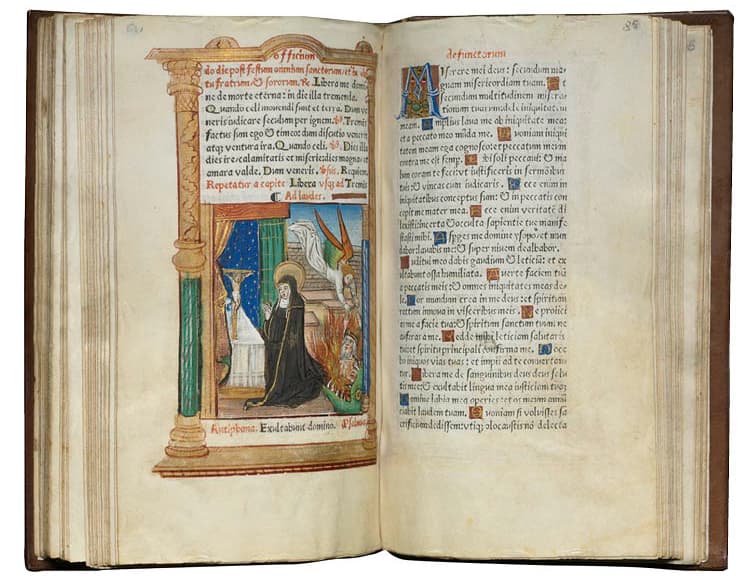 officium
do die post festum omnium sanctorum: et in obi
tu fratrum & sororum. R. Libera me domi
ne de morte eterna: in die illa tremenda.
Quando celi movendi sunt et terra. Dum ve
neris iudicare seculum per ignem. Tremēs
factus sum ego & timeo: dum discutio venerit
atq; ventura ira. Quando celi. Dies illa
dies ire: calamitatis et miserie: dies magna et
amara valde. Dum veneris. Requiem.
Repetatur a capite Libera usq; ad Tremēs
Ad laudes.
Antiphona. Exultabunt domino.
defunctorum
85
Miserere mei deus: secundum ma-
gnam misericordiam tuam. Et
secundum multitudinem misera-
tionum tuarum: dele iniquitatē
meam. Amplius lava me ab iniquitate mea:
et a peccato meo mūda me. Quoniam iniqui
tatem meam ego cognosco: et peccatum meum
contra me est semp. Tibi soli peccavi: & ma
lum coram te feci: vt iustificeris in sermōibus
tuis: & vincas cum iudicaris. Ecce enim in
iniquitatibus conceptus sum: & in peccatis con
cepit me mater mea. Ecce enim veritatē di
lexisti: incerta & occulta sapientie tue manife
stasti mihi. Asperges me domine ysopo: et mun
dabor: lavabis me: & super nivem dealbabor.
Auditui meo dabis gaudium & leticiā: et ex
ultabunt ossa humiliata. Averte faciem tuā
a peccatis meis: & omnes iniquitates meas de
le. Cor mundum crea in me deus: et spiritum
rectum innova in visceribus meis. Ne proiici
as me a facie tua: & spiritum sanctum tuum ne
auferas a me. Redde mihi leticiam salutaris
tui: et spiritu principali confirma me. Doce
bo iniquos vias tuas: et impii ad te convertan
tur. Libera me de sanguinibus deus deus salu
tis mee: & exultabit lingua mea iusticiam tuā.
Domine labia mea aperies: et os meum annū
ciabit laudem tuam. Quoniam si voluisses sa
crificium dedissem: vtiq; olocaustis nō delecta